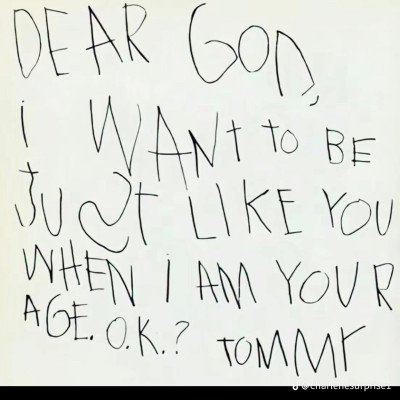 DEAR GOD,
i WANt to BE
JUSt LIKE YOU
WHEN i AM YOUR
AGE. O.K.? tOMMY
@charlenesurprise1